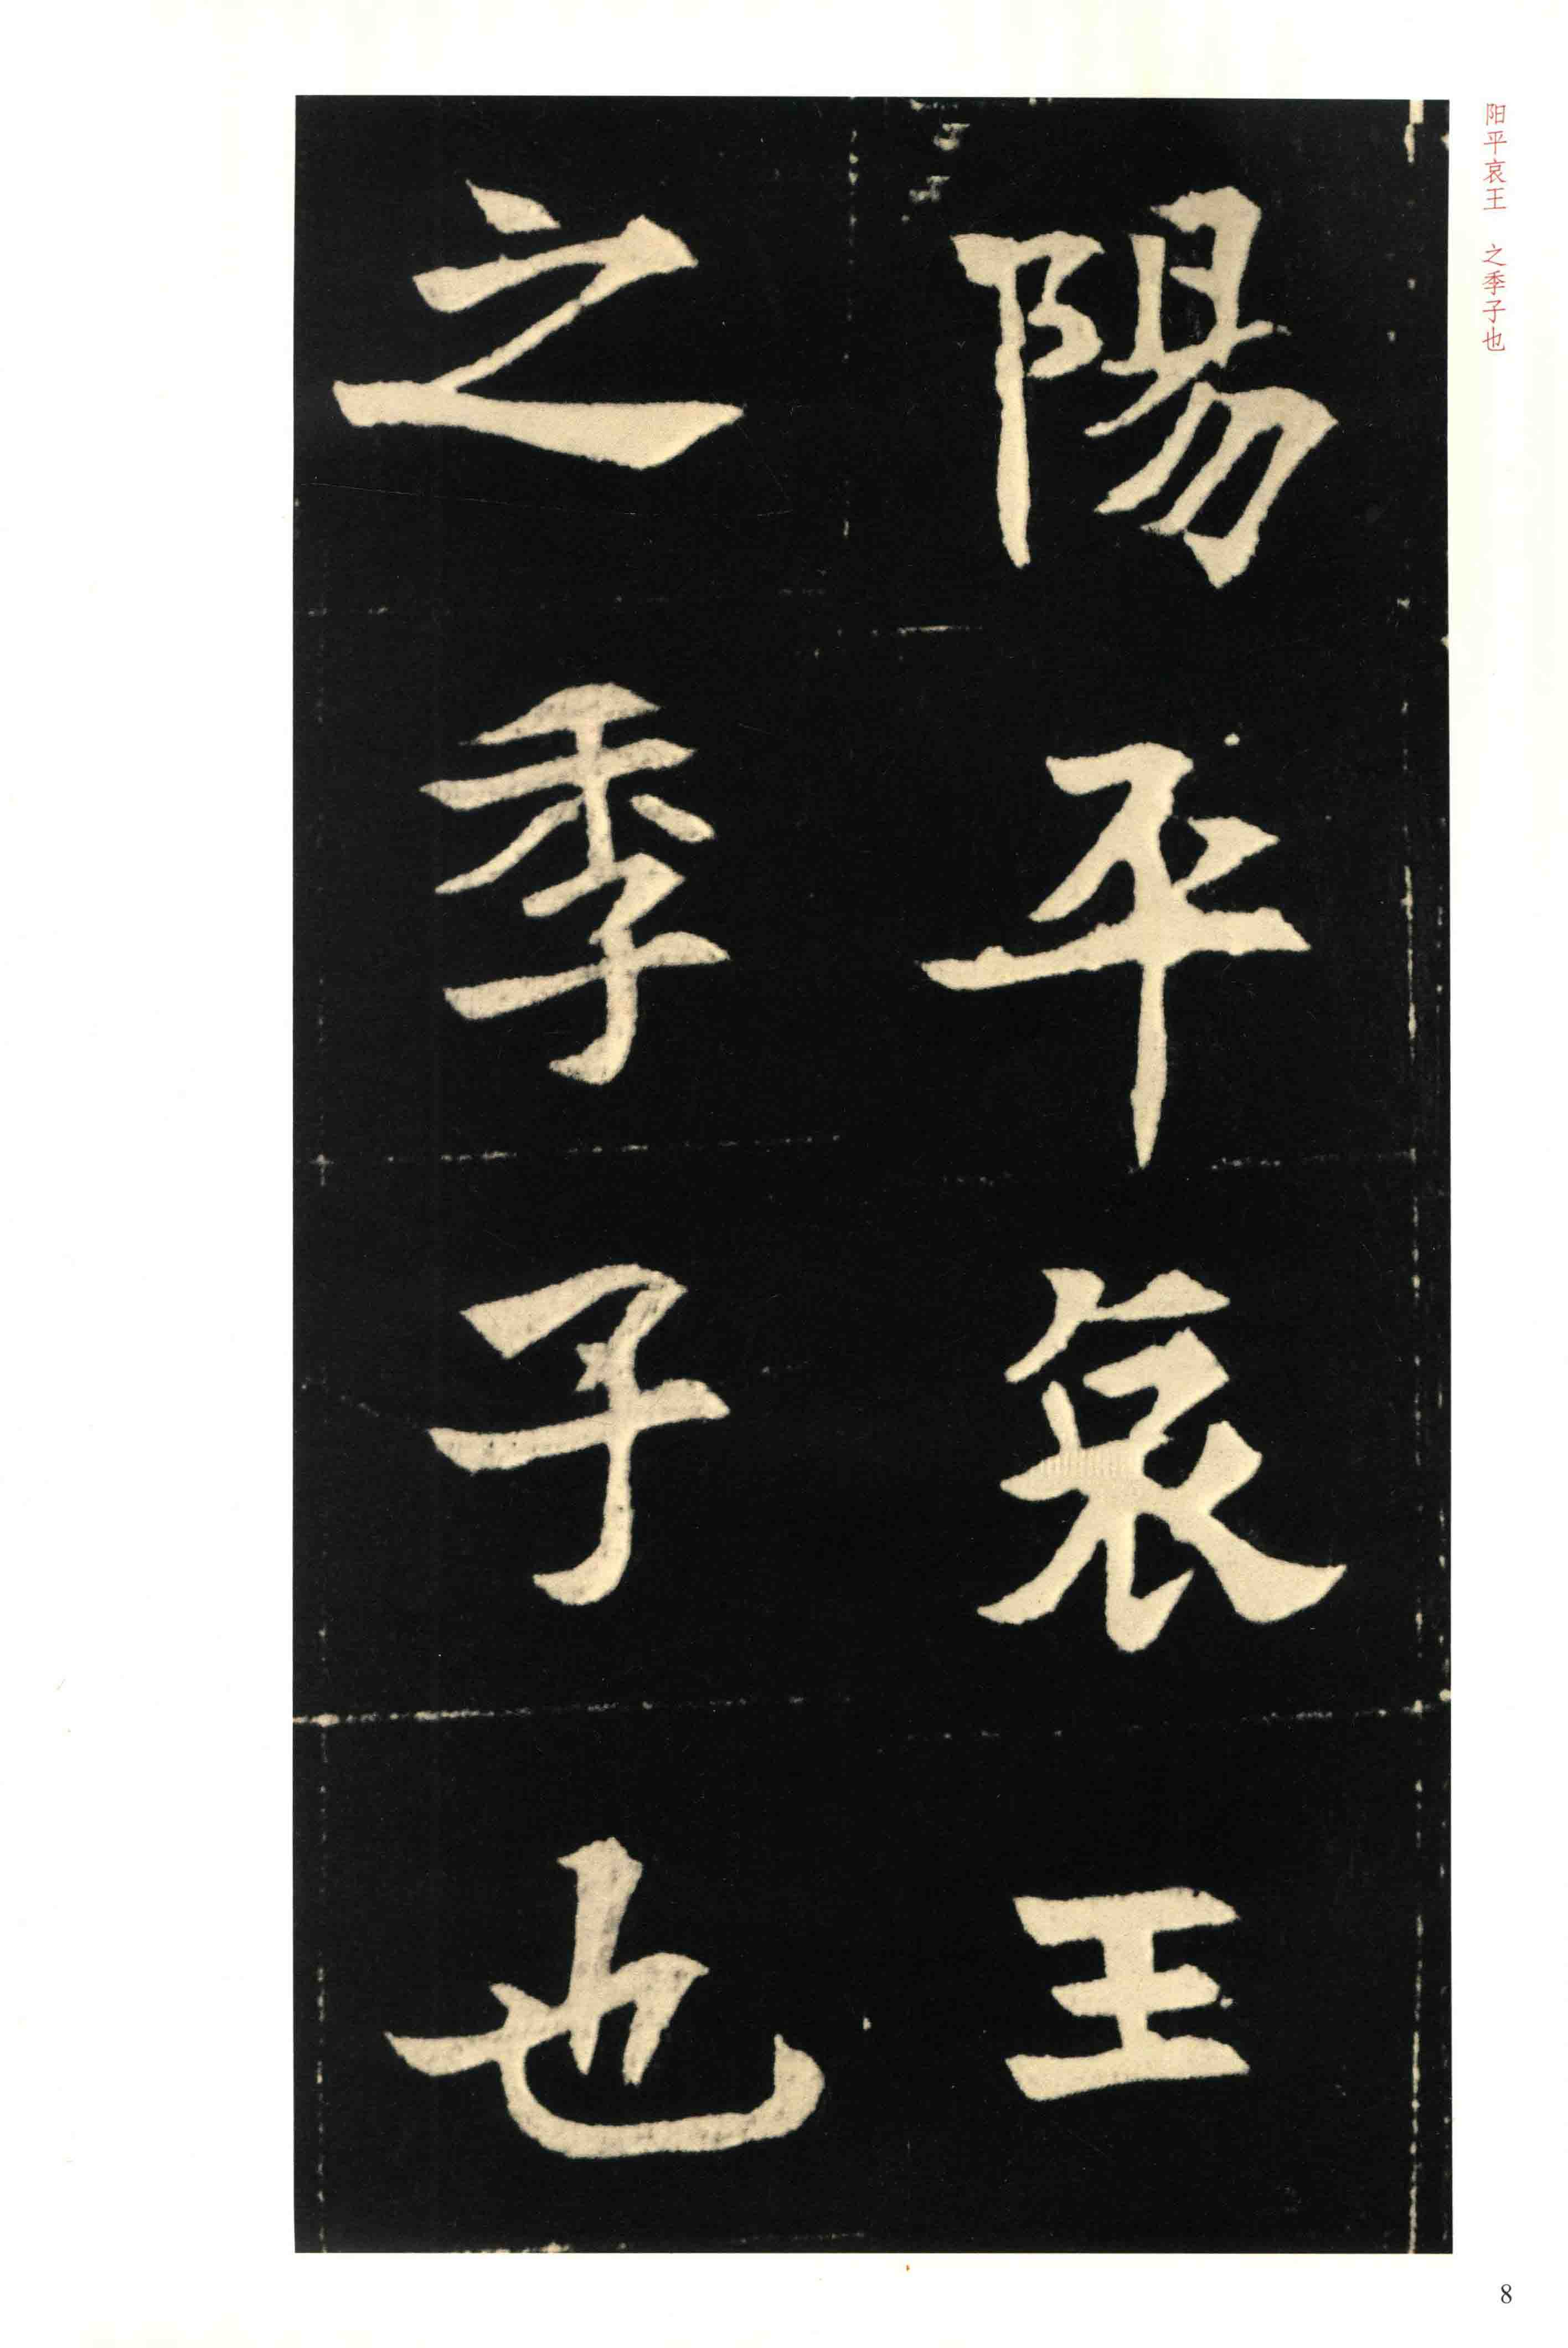 阳平哀王 之季子也
陽平哀王
之季子也
8